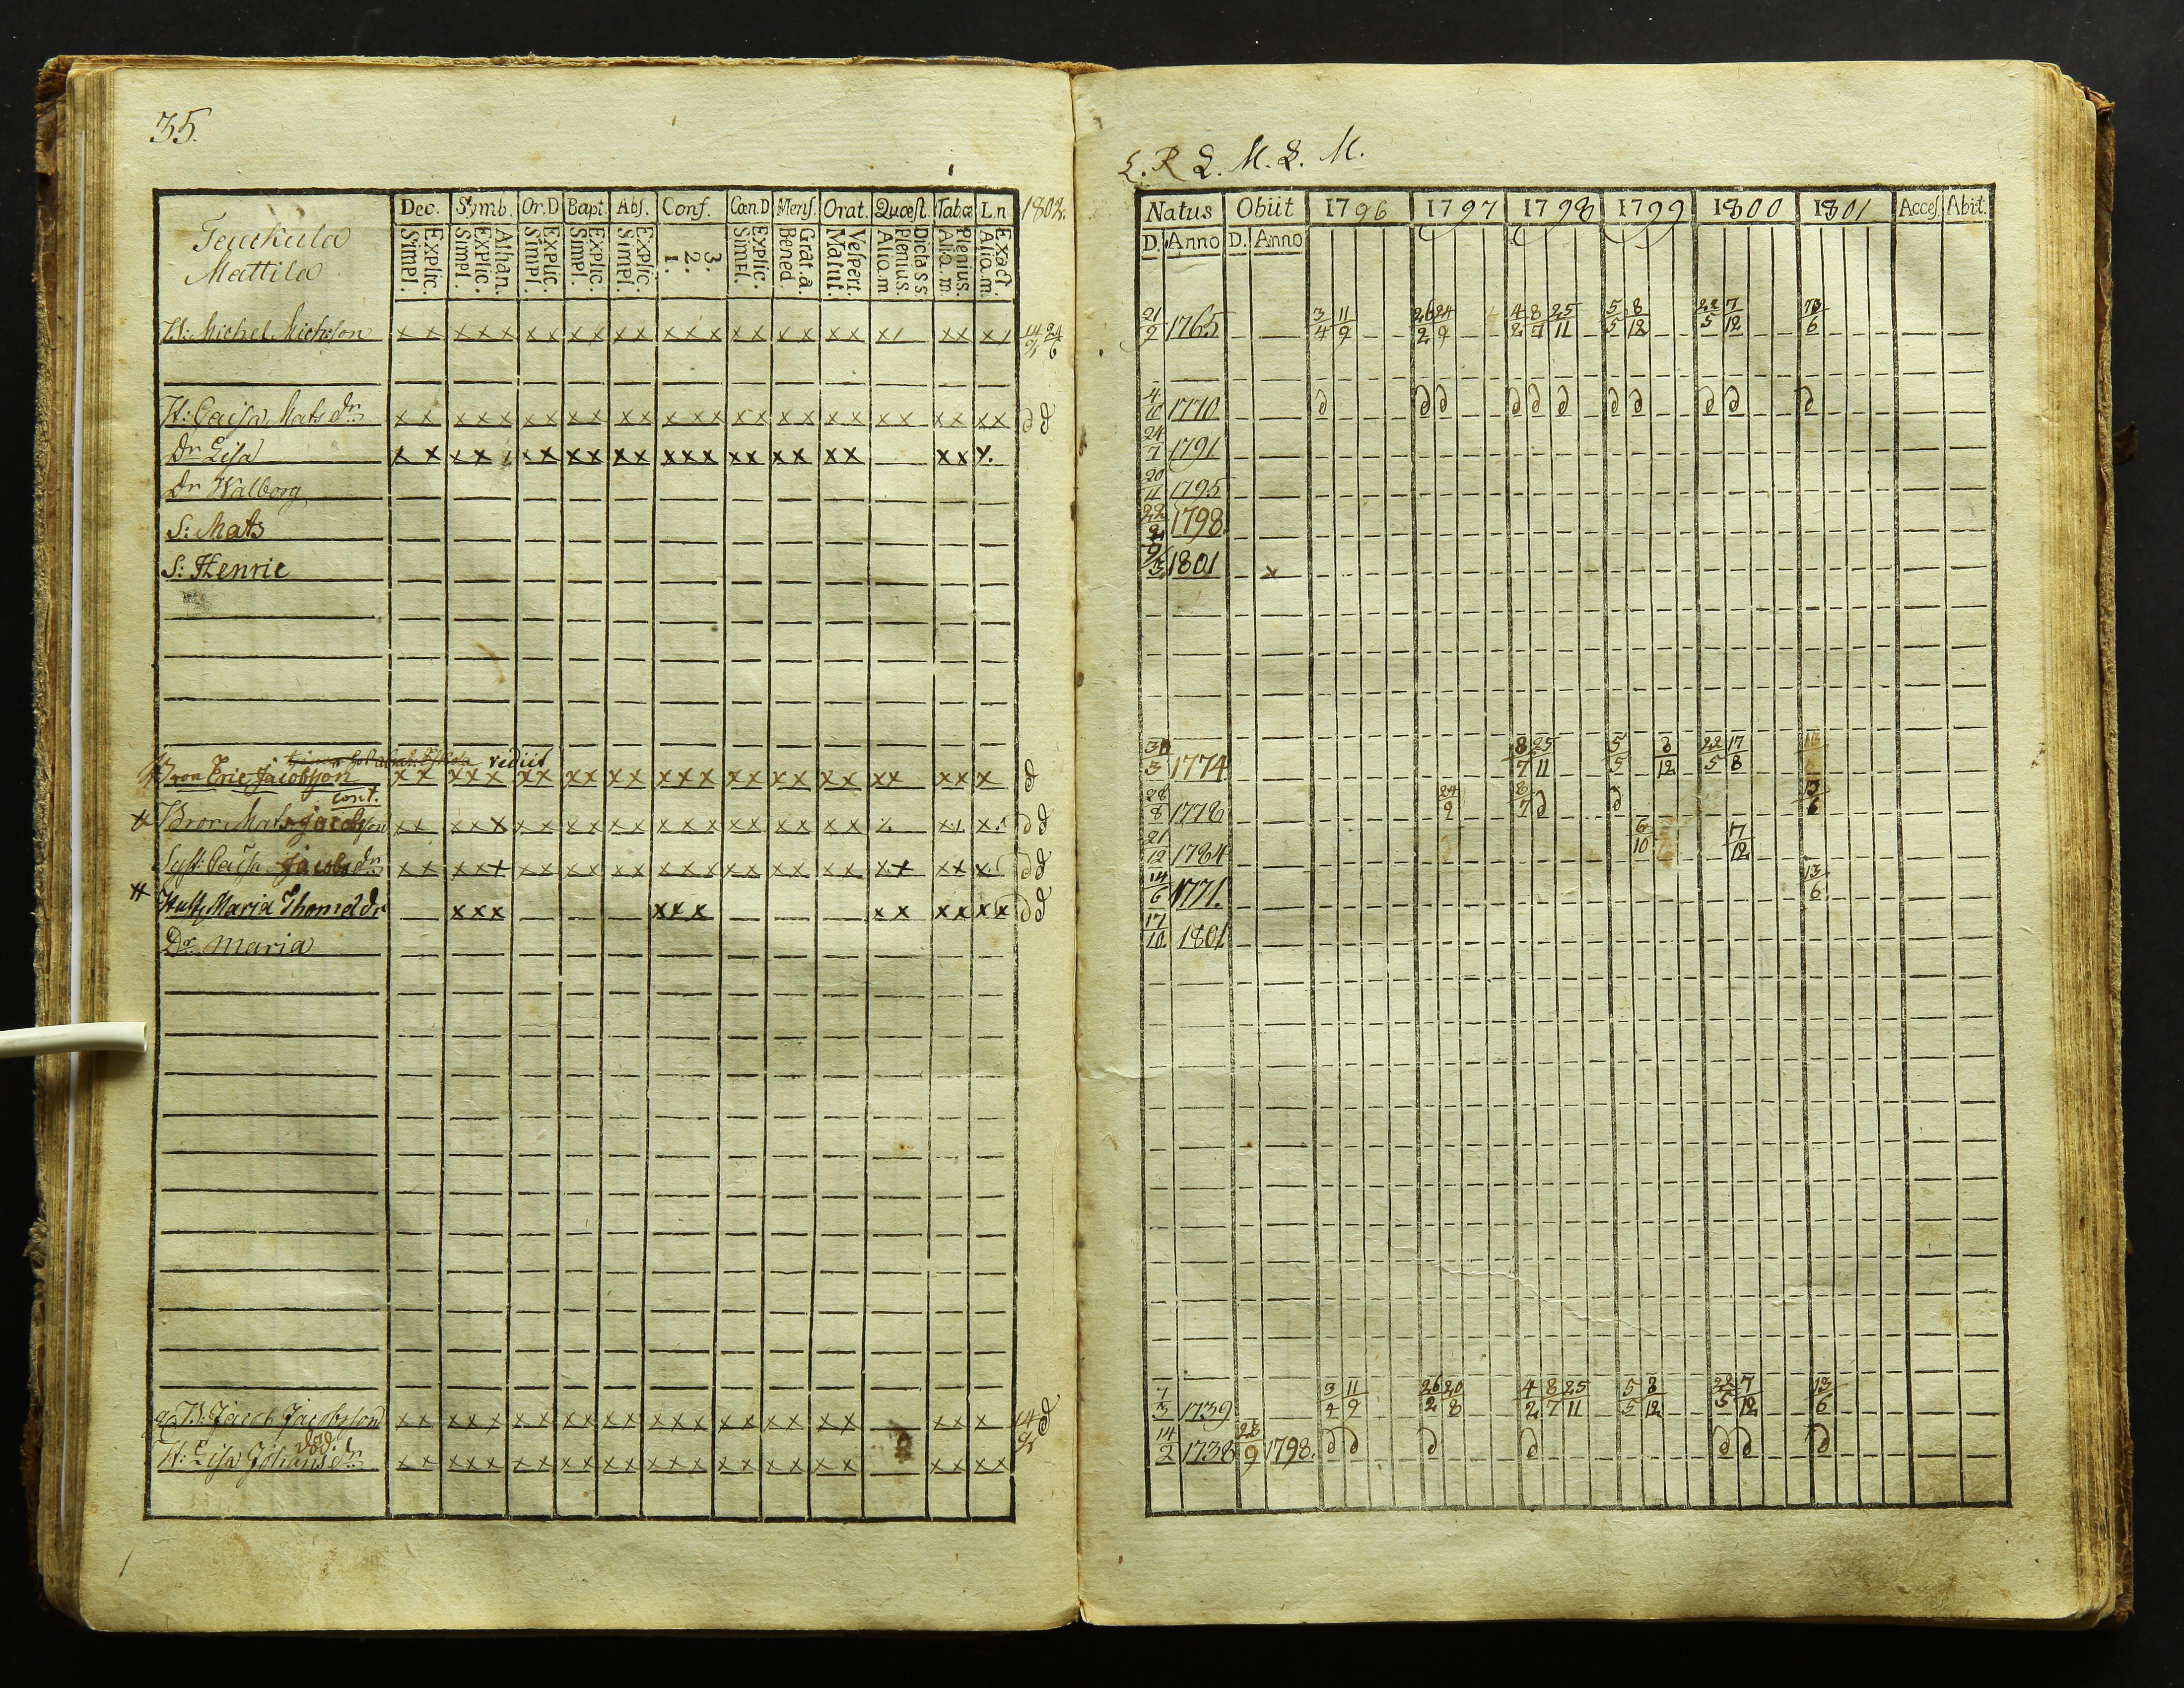 35.
L. R L. M. L. M.
Teuckula
Mattila
Dec. Symb. Or.D Bapt. Abs. Conf. Cœn.D Mens. Orat. Quæst. Tabæ L.n 1802.
Simpl. Explic. Simpl. Explic. Athan. Simpl. Explic. Simpl. Explic. Simpl. Explic. 1. 2. 3. Simpl. Explic. Bened. Grat. a. Matut. Vespert. Alio. m. Plenius. Dicta s s. Alia. m. Plenius. Alia. m. Exact.
Natus Obiit 1796 1797 1798 1799 1800 1801 Acces. Abit.
D. Anno D. Anno
B: Michel Michelson x x x x x x x x x x x x x x x x x x x x x x x x x x x 14/ 24/6 21/2 1765 3/4 11/9 26/2 24/9 4/2 8/7 25/11 5/5 8/12 22/5 7/12 13/6
H: Caisa Mats dr x x x x x x x x x x x x x x x x x x x x x x x x x x d d 4/10 1770 d d d d d d d d d d d
dr Lisa x x x x x x x x x x x x x x x x x x x x x x x. 24/7 1791
dr Walborg 20/11 1795
S: Mats 22/2 1798
S: Henric 9/3 1801 x
rediit
Bror Eric Jacobsson x x x x x x x x x x x x x x x x x x x x x x x x x d 3 1774 8/7 25/11 5/5 8/12 22/5 17/8 13/6
cont.
Bror Mats Jacobsson x x x x x x x x x x x x x x x x x x x x x d d 28/8 1778 24/9 8/7 d d 13/6
Syst: Caisa Jacobs dr x x x x x x x x x x x x x x x x x x x x x x x x x d d 21/12 1784 6/10 17/12
Hust. Maria Thomæ dr x x x x x x x x x x x x d d 14/6 1771. 13/6
Dr Maria 17/10 1801
B: Jacob Jacobsson x x x x x x x x x x x x x x x x x x x x x x x 14/ d 7/3 1739 3/4 11/9 26/2 20/8 4/2 8/7 25/11 5/5 8/12 22/5 7/12 13/6
död.
H: Lisa Johans dr x x x x x x x x x x x x x x x x x x x x x x x x 14/2 1738 28/9 1798. d d d d d d d